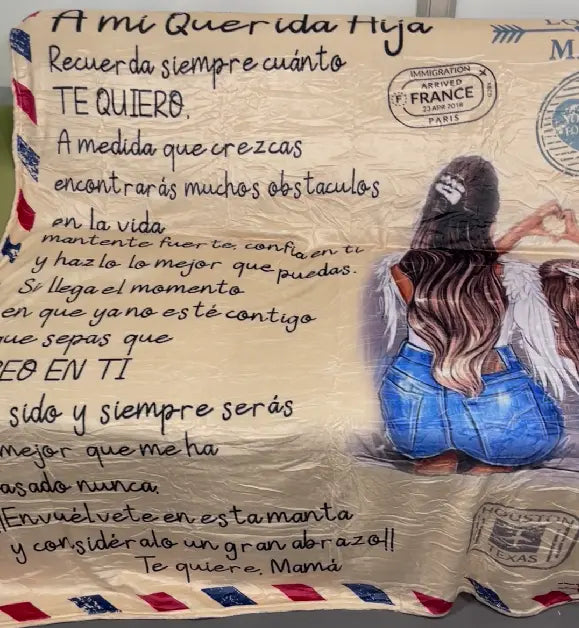 A mi Querida Hija
Recuerda siempre cuánto
TE QUIERO,
A medida que crezcas
encontrarás muchos obstaculos
en la vida
mantente fuerte, confía en ti
y hazlo lo mejor que puedas.
Si llega el momento
en que ya no esté contigo
que sepas que
EO EN TI
sido y siempre serás
mejor que me ha
asado nunca.
¡¡Envuélvete en esta manta
y considéralo un gran abrazo!!
Te quiere, Mamá
IMMIGRATION
ARRIVED
F FRANCE
23 APR 2018
PARIS
HOUSTON
TEXAS